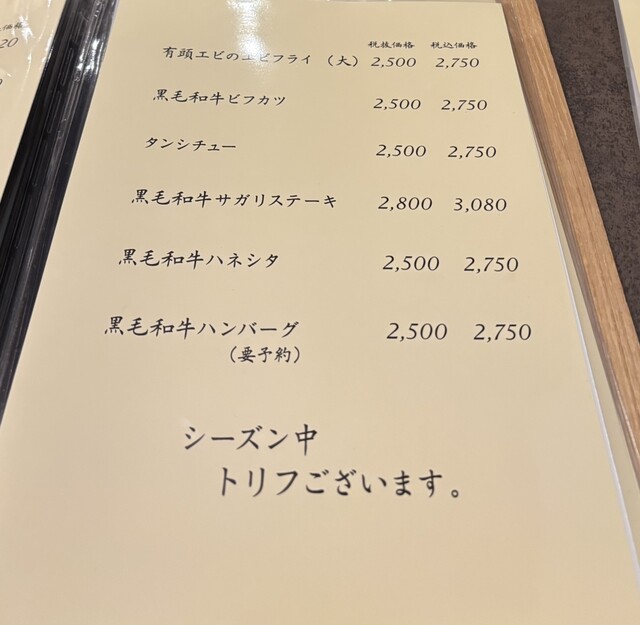 価格
20
税抜価格 税込価格
有頭エビのエビフライ (大) 2,500 2,750
黒毛和牛ビフカツ 2,500 2,750
タンシチュー 2,500 2,750
黒毛和牛サガリステーキ 2,800 3,080
黒毛和牛ハネシタ 2,500 2,750
黒毛和牛ハンバーグ 2,500 2,750
(要予約)
シーズン中
トリフございます。